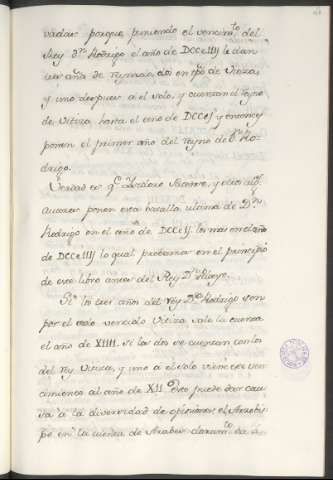 vadas porque poniendo el vencimto del
Rey Dn Rodrigo el año de DCCxIIIJ le dan
tres años de reynado, dos en tpo de Vitiza,
y uno despues a el solo, y cuentan el reyno
de Vitiza hasta el año de DCCxJ y entonces
ponen el primer año del reyno de Dn Ro-
drigo.
Verdad es qe Isidoro Pacense, y otros alg
Autores ponen esta batalla ultima de Dn
Rodrigo en el año de DCCxIJ. los mas en el año
de DCCxIIIJ lo qual probamos en el principio
de este libro antes del Rey Dn Pelayo.
Si los tres años del rey Dn Rodrigo son
por el solo vencido Vitiza sale la cuenta
el año de XIIII. Si los dos se cuentan con los
del rey Vitiza, y uno a el solo viene ese ven-
cimiento al año de XII. Esto puede dar cau-
sa a la diversidad de opiniones el Arzobis-
po en la cuenta de Arabes